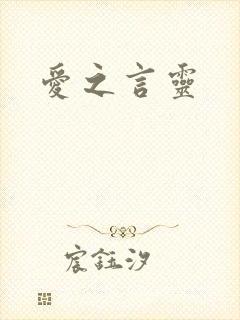 愛之言靈
宸鈺汐